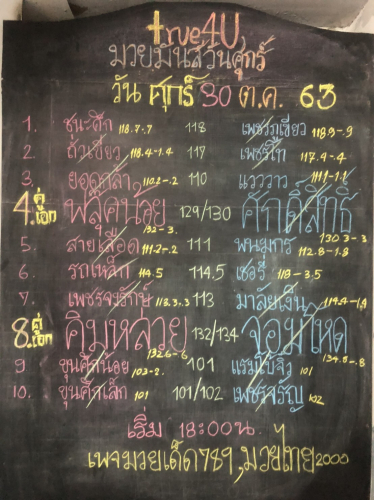 true4U
มวยมันส์วันศุกร์
วัน ศุกร์ 30 ต.ค. 63
1. ชนะศึก 118.7-.7 118 เพชรภูเขียว 118.9-.9
2. ถ้ำเขียว 118.4-1.4 117 เพชรโท 117.4-.4
3. ยอดกล้า 110.2-.2 110 แวววาว 111.1-1.1
4. คู่เอก พลุศน้อย 132-3. 129/130 ศักดิ์สิทธิ์ 130.3-3
5. สายเลือด 111.2-.2 111 พนมกร 112.8-1.8
6. รถเหล็ก 114.5 114.5 เชอรี่ 118-3.5
7. เพชรจงรักษ์ 113 มาลัยเงิน 114.4-1.4
8. คู่เอก คิมหลวย 132.6-.6 132/134 จอมโหด 134.8-.8
9 ขุนศึกน้อย 103-2. 101 แรมโบ้จิ๋ว 101
10. ขุนศึกเล็ก 101 101/102 เพชรจรัญ 102
เริ่ม 18:00น.
เพจมวยเด็ด789,มวยไทย2000